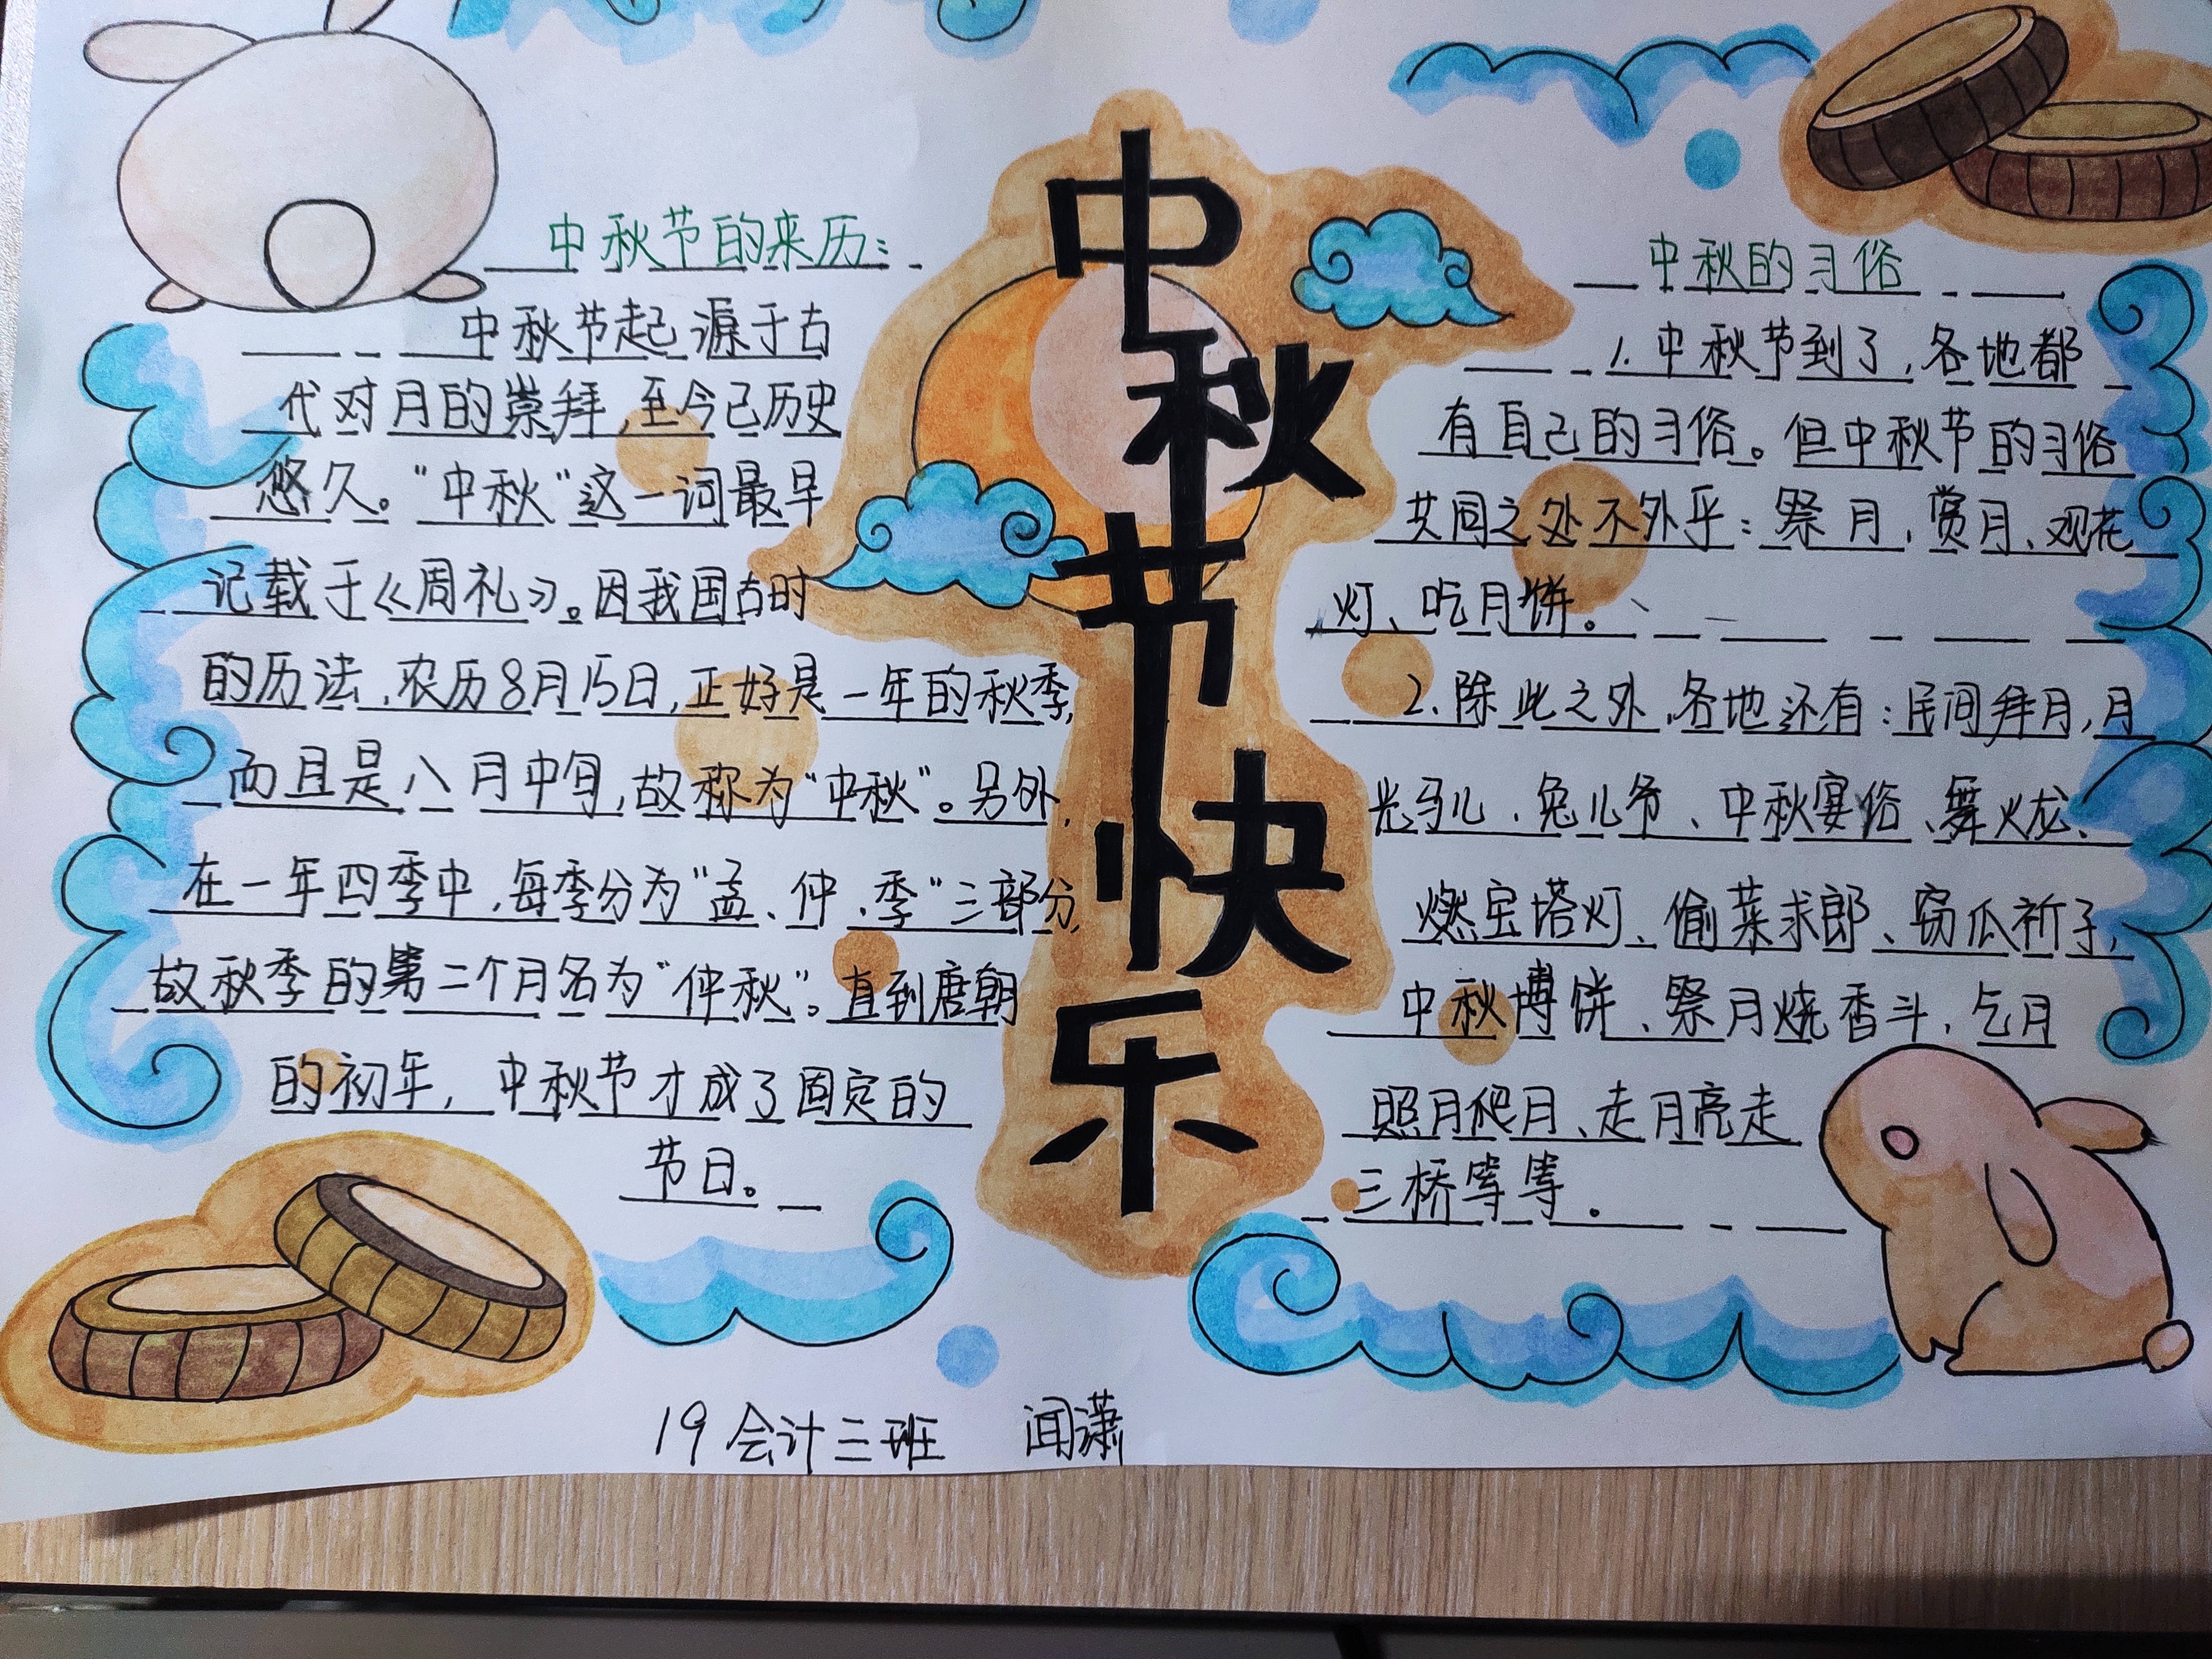 中秋节的来历：
中秋节起源于古
代对月的崇拜,至今已历史
悠久。“中秋”这一词最早
记载于《周礼》。因我国古时
的历法,农历8月15日,正好是一年的秋季,
而且是八月中旬,故称为“中秋”。另外,
在一年四季中,每季分为“孟、仲、季”三部分,
故秋季的第二个月名为“仲秋”。直到唐朝
的初年,中秋节才成了固定的
节日。
中秋节快乐
中秋的习俗
1.中秋节到了,各地都
有自己的习俗。但中秋节的习俗
共同之处不外乎：祭月、赏月、观花
灯、吃月饼。
2.除此之外,各地还有：民间拜月,月
光马儿、兔儿爷、中秋宴俗、舞火龙、
燃宝塔灯、偷菜求郎、窃瓜祈子,
中秋博饼、祭月烧香斗,乞月
照月爬月、走月亮走
三桥等等。
19会计三班 闻潇